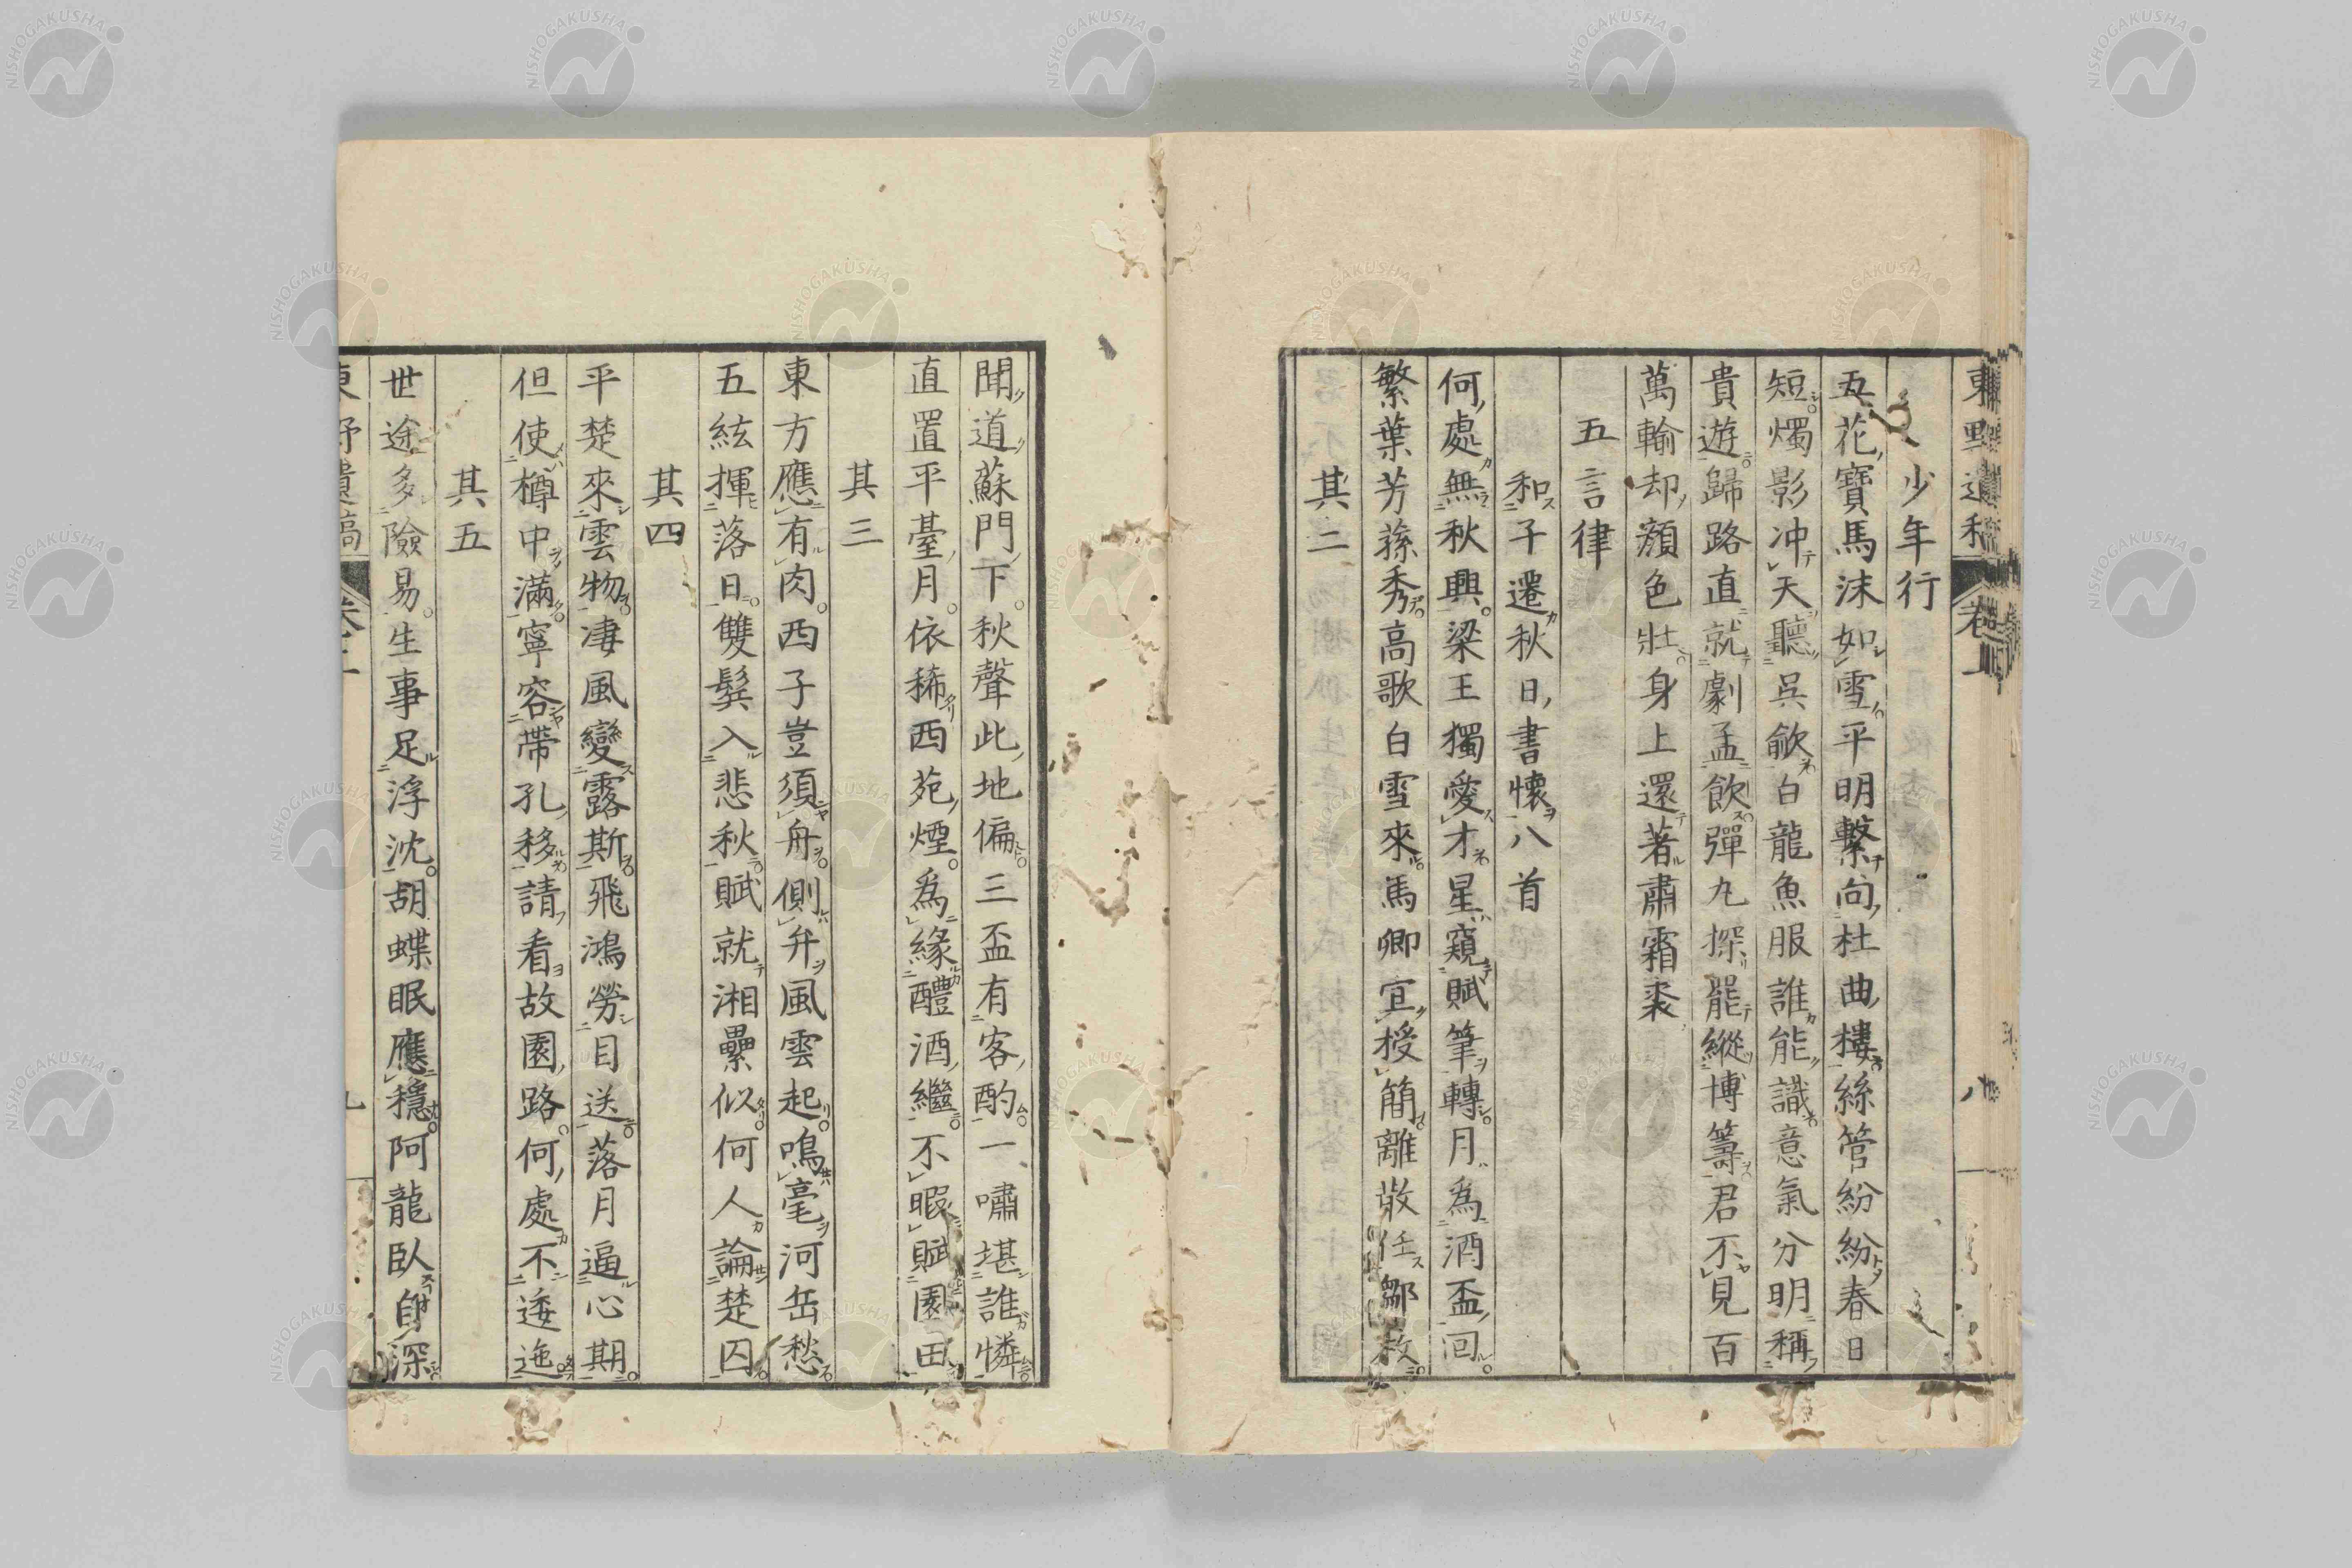 少年行
五花寶馬沫如雪平明繫向杜曲樓絲管紛紛春日
短燭影冲天聽吳歈白龍魚服誰能識意氣分明稱
貴遊歸路直就劇孟飲彈丸探罷縱博籌君不見百
萬輸却顏色壯身上還著肅霜裘
五言律
和子遷秋日書懷八首
何處無秋興梁王獨愛才星窺賦筆轉月爲酒盃回
繁葉芳蓀秀高歌白雪來馬卿宜授簡離散任鄒枚
其二
聞道蘇門下秋聲此地偏三盃有客酌一嘯堪誰憐
直置平臺月依稀西苑煙爲緣醴酒繼不暇賦園田
其三
東方應有肉西子豈須舟側弁風雲起鳴毫河岳愁
五絃揮落日雙鬂入悲秋賦就湘纍似何人論楚囚
其四
平楚來雲物淒風變露斯飛鴻勞目送落月逼心期
但使樽中滿寧容帶孔移請看故園路何處不逶迤
其五
世途多險易生事足浮沈胡蝶眠應穩阿龍臥自深
東野遺稿